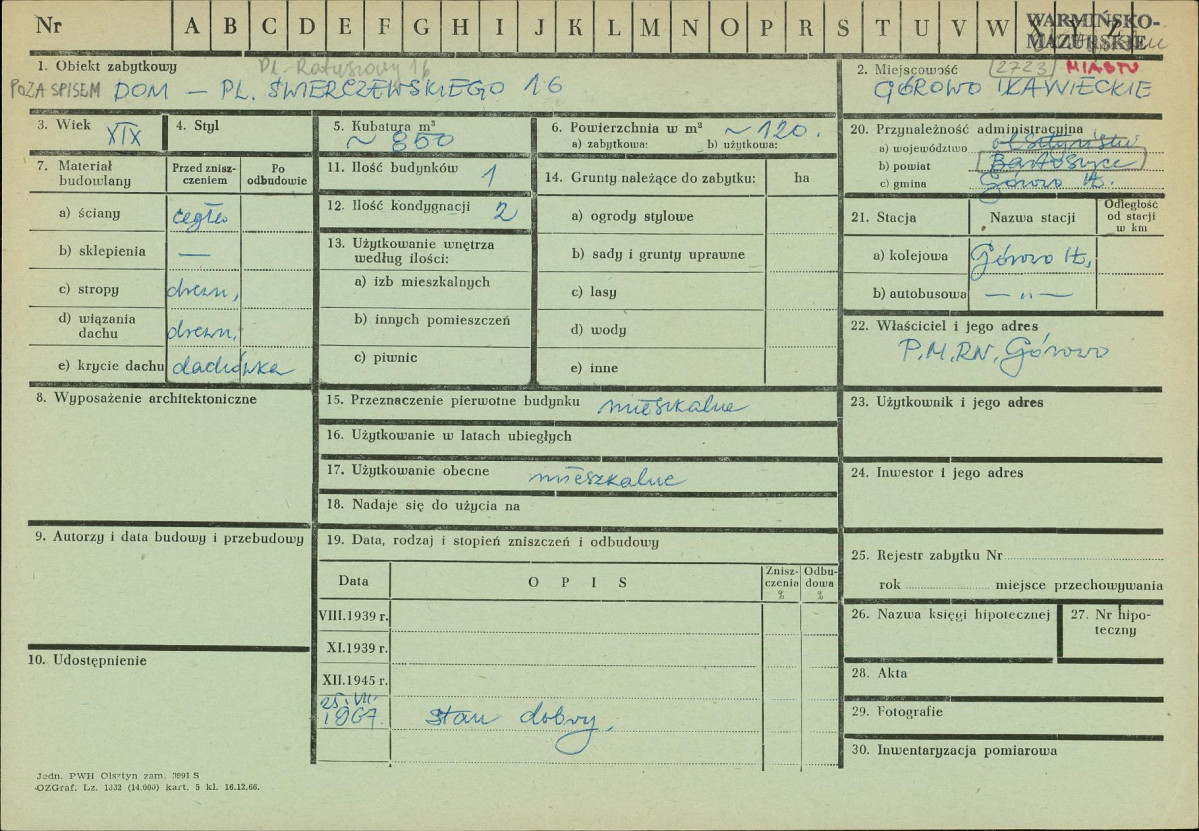 Nr A B C D E F G H I J K L M N O P R S T U V W X Y Z
WARMIŃSKO-
MAZURSKIE
1. Obiekt zabytkowy
Pl. Ratuszowy 16
POZA SPISEM DOM – PL. ŚWIERCZEWSKIEGO 16
2. Miejscowość 2723 MIASTO
GÓROWO IŁAWIECKIE
3. Wiek XIX
4. Styl
5. Kubatura m³
~ 850
6. Powierzchnia w m² ~ 120.
a) zabytkowa: b) użytkowa:
7. Materiał budowlany
Przed zniszczeniem
Po odbudowie
a) ściany cegła
b) sklepienia —
c) stropy drewn,
d) wiązania dachu drewn,
e) krycie dachu dachówka
8. Wyposażenie architektoniczne
9. Autorzy i data budowy i przebudowy
10. Udostępnienie
11. Ilość budynków 1
12. Ilość kondygnacji 2
13. Użytkowanie wnętrza
według ilości:
a) izb mieszkalnych
b) innych pomieszczeń
c) piwnic
14. Grunty należące do zabytku: ha
a) ogrody stylowe
b) sady i grunty uprawne
c) lasy
d) wody
e) inne
15. Przeznaczenie pierwotne budynku mieszkalne
16. Użytkowanie w latach ubiegłych
17. Użytkowanie obecne mieszkalne
18. Nadaje się do użycia na
19. Data, rodzaj i stopień zniszczeń i odbudowy
Data OPIS Zniszczenia % Odbudowa %
VIII.1939 r.
XI.1939 r.
XII.1945 r.
25.VII.
1967. stan dobry,
20. Przynależność administracyjna
a) województwo olsztyński
b) powiat Bartoszyce
c) gmina Górowo Ił.
21. Stacja Nazwa stacji Odległość od stacji w km
a) kolejowa Górowo Ił,
b) autobusowa — „ —
22. Właściciel i jego adres
P.M.RN, Górowo
23. Użytkownik i jego adres
24. Inwestor i jego adres
25. Rejestr zabytku Nr
rok miejsce przechowywania
26. Nazwa księgi hipotecznej
27. Nr hipoteczny
28. Akta
29. Fotografie
30. Inwentaryzacja pomiarowa
Jedn. PWH Olsztyn zam. 3991 S
OZGraf. Lz. 1332 (14.000) kart. 5 kl. 16.12.66.